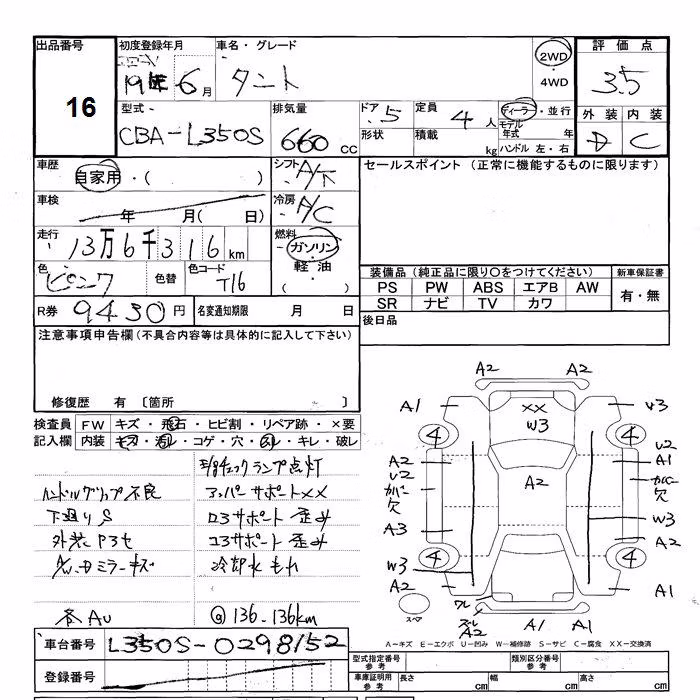 出品番号
16
初度登録年月
19年6月
車名・グレード
タント
2WD
4WD
評価点
3.5
外装 内装
D C
型式
CBA-L350S
排気量
660 CC
ドア 5
形状
定員 4 人
積載 kg
ディーラー・並行
モデル年式 年
ハンドル 左・右
車歴
自家用・( )
シフト
A/T
セールスポイント (正常に機能するものに限ります)
車検
年 月( 日)
冷房
A/C
走行
13万6千316km
燃料
ガソリン
・軽油・
( )
色
ピンク
色替
色コード
T16
装備品 (純正品に限り〇をつけてください)
新車保証書
PS PW ABS エアB AW
SR ナビ TV カワ
有・無
R券 9430円
名変通知期限 月 日
後日品
注意事項申告欄 (不具合内容等は具体的に記入して下さい)
修復歴 有 〔箇所 〕
検査員記入欄
FW キズ・飛石・ヒビ割・リペア跡・×要
内装 キズ・汚レ・コゲ・穴・スレ・キレ・破レ
チェックランプ点灯
ハンドルグリップ不良 アッパーサポートXX
下廻りS ロアサポート歪み
コアサポート歪み
ミラーキズ 冷却水モレ
各AU 136.136km
A2 A2
A1 XX W3
W3
4 4
A2 U2 A1
U2 A2
カバー欠 カバー欠
A3 W3
A2
4 4
W3
A2 A1
ワレ
スペア
ズレ
A2 A1 A1
A-キズ E-エクボ U-凹み W-補修跡 S-サビ C-腐食 XX-交換済
車台番号 L350S-0298152
登録番号
型式指定番号 参考
類別区分番号 参考
車庫証明用 参考
長さ cm 幅 cm 高さ cm